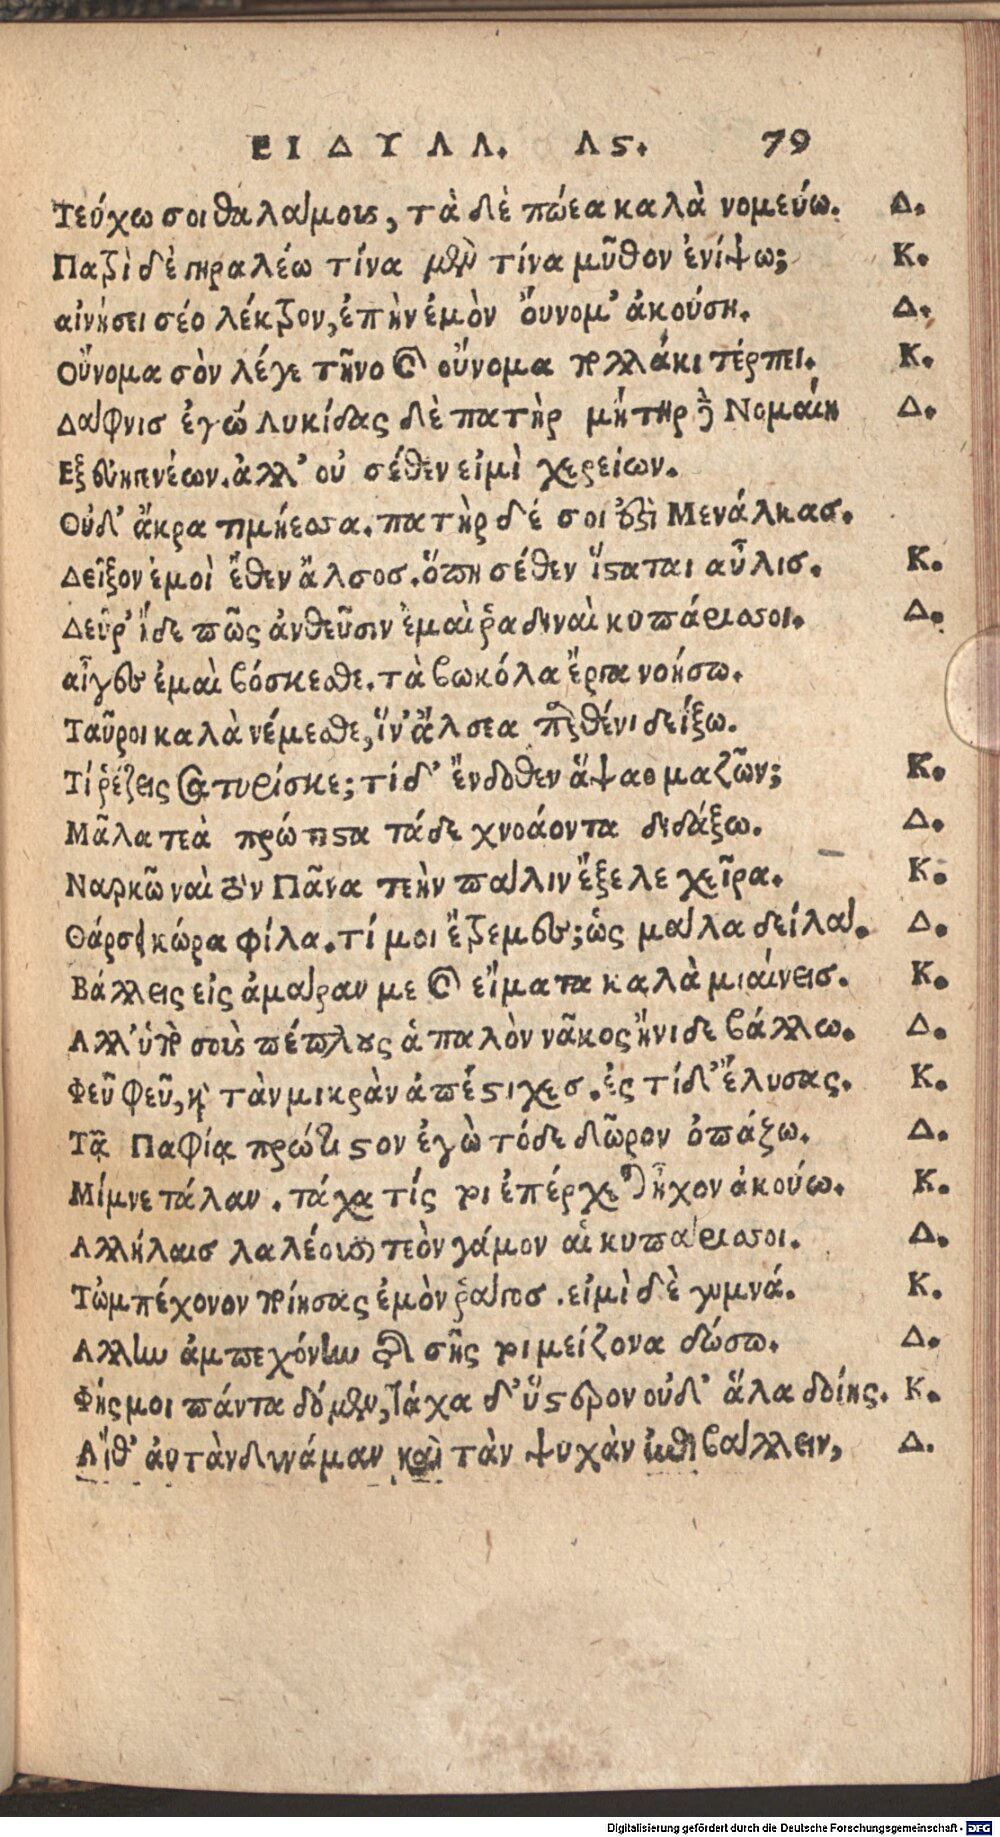 ΕΙΔΥΛΛ. Λϛ. 79
Τεύχω σοι θαλάμοις, τὰ δὲ πώεα καλὰ νομεύω. Δ.
Πατρὶ δὲ γηραλέω τίνα μὲν τίνα μῦθον ἐνίψω; Κ.
αἰνήσει σέο λέκτρον, ἐπὴν ἐμὸν ὄυνομ' ἀκούσῃ. Δ.
Οὔνομα σὸν λέγε τῆνο καὶ οὔνομα πολλάκι τέρπει. Κ.
Δάφνισ ἐγώ Λυκίδας δὲ πατὴρ μήτηρ δὲ Νομαίη Δ.
Εξ εὐηπνέων. ἀλλ' οὐ σέθεν εἰμὶ χερείων.
Οὐδ' ἄκρα τιμήεσσα. πατὴρ δέ σοι ἐστὶ Μενάλκασ.
Δεῖξον ἐμοὶ ἔθεν ἄλσοσ. ὅπη σέθεν ἵσταται αὖλισ. Κ.
Δεῦρ' ἴδε πῶς ἀνθεῦσιν ἐμαὶ ῥαδιναὶ κυπάρισσοι. Δ.
αἶγες ἐμαὶ βόσκεσθε. τὰ βωκόλα ἔργα νοήσω.
Ταῦροι καλὰ νέμεσθε, ἵν' ἄλσεα παρθένι δείξω.
Τί ῥέζεις σατυρίσκε; τί δ' ἔνδοθεν ἅψαο μαζῶν; Κ.
Μᾶλα τεὰ πρώτιστα τάδε χνοάοντα διδάξω. Δ.
Ναρκῶ ναὶ τὸν Πᾶνα τεὴν πάλιν ἔξελε χεῖρα. Κ.
Θάρσει κώρα φίλα. τί μοι ἔτρεμες; ὡς μάλα δείλα. Δ.
Βάλλεις εἰς ἀμάραν με καὶ εἵματα καλὰ μιαίνεισ. Κ.
Αλλ' ὑπὸ σοὺς πέπλους ἁπαλὸν νᾶκος ἤνιδε βάλλω. Δ.
Φεῦ φεῦ, καὶ τὰν μικρὰν ἀπέστιχεσ. ἐς τί δ' ἔλυσας. Κ.
Τᾷ Παφίᾳ πρώτιστον ἐγὼ τόδε δῶρον ὀπάζω. Δ.
Μίμνε τάλαν. τάχα τίς τοι ἐπέρχεται ἦχον ἀκούω. Κ.
Αλλήλαισ λαλέουσι τεὸν γάμον αἱ κυπάρισσοι. Δ.
Τὠμπέχονον ποίησας ἐμὸν ῥάκοσ. εἰμὶ δὲ γυμνά. Κ.
Αλλην ἀμπεχόνην τῆς σῆς τοι μείζονα δώσω. Δ.
Φής μοι πάντα δόμεν, τάχα δ' ὕστερον οὐδ' ἅλα δοίης. Κ.
Αἴθ' ἀυτὰν δυνάμαν καὶ τὰν ψυχὰν ἐπιβάλλειν, Δ.
Digitalisierung gefördert durch die Deutsche Forschungsgemeinschaft - DFG